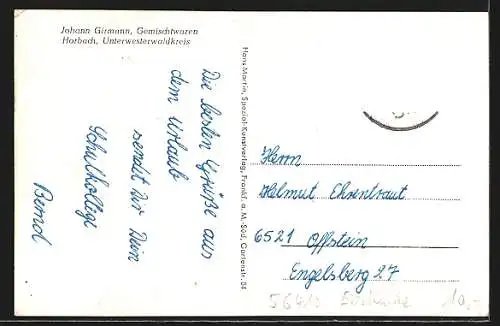 Johann Girmann, Gemischtwaren
Horbach, Unterwesterwaldkreis
Die besten Grüße aus
dem Urlaub
sendet Dir Dein
Schulkollege
Bernd
Hans Martin, Spezial-Kunstverlag, Frankf. a. M.-Süd, Gartenstr. 54
Herrn
Helmut Ehrentraut
6521 Offstein
Engelsberg 27
10,-